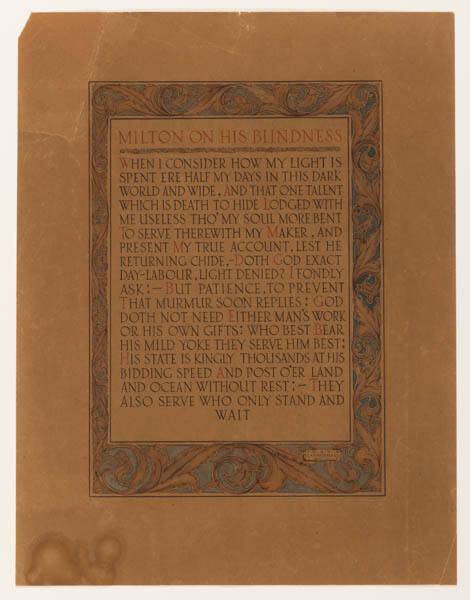 MILTON ON HIS BLINDNESS
WHEN I CONSIDER HOW MY LIGHT IS
SPENT ERE HALF MY DAYS IN THIS DARK
WORLD AND WIDE, AND THAT ONE TALENT
WHICH IS DEATH TO HIDE LODGED WITH
ME USELESS THO' MY SOUL MORE BENT
TO SERVE THEREWITH MY MAKER, AND
PRESENT MY TRUE ACCOUNT, LEST HE
RETURNING CHIDE,–DOTH GOD EXACT
DAY-LABOUR, LIGHT DENIED? I FONDLY
ASK:– BUT PATIENCE, TO PREVENT
THAT MURMUR SOON REPLIES: GOD
DOTH NOT NEED EITHER MAN'S WORK
OR HIS OWN GIFTS: WHO BEST BEAR
HIS MILD YOKE THEY SERVE HIM BEST:
HIS STATE IS KINGLY THOUSANDS AT HIS
BIDDING SPEED AND POST O'ER LAND
AND OCEAN WITHOUT REST:– THEY
ALSO SERVE WHO ONLY STAND AND
WAIT